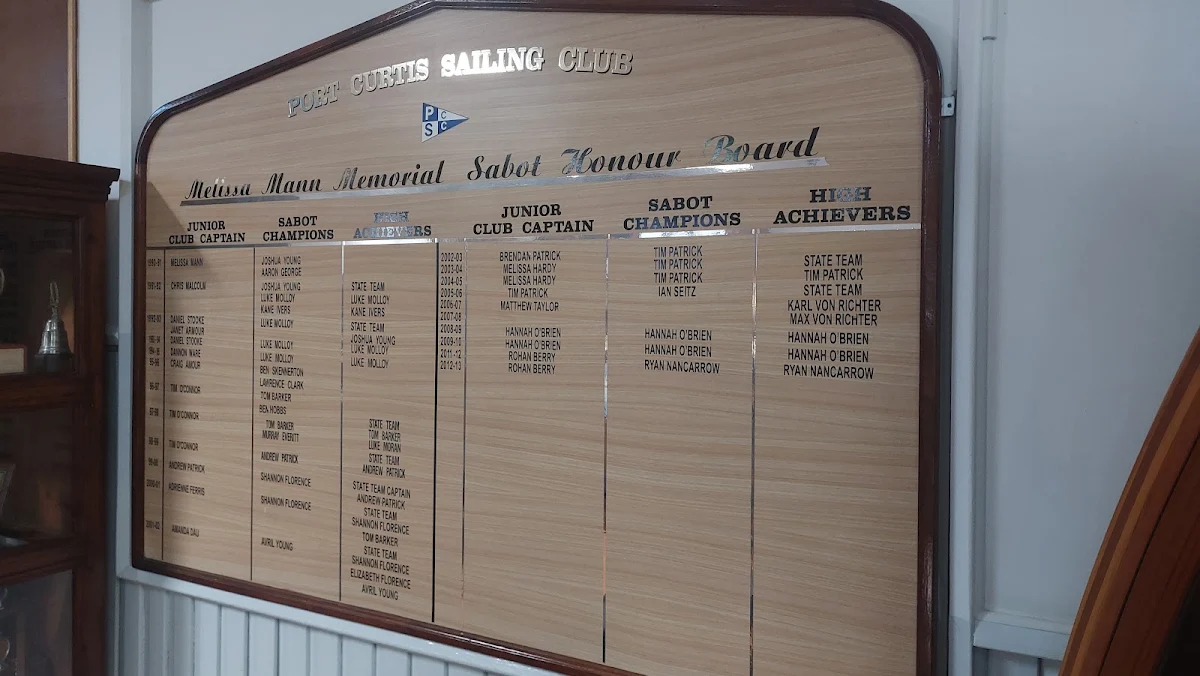 PORT CURTIS SAILING CLUB
P C
S C
Melissa Mann Memorial Sabot Honour Board
JUNIOR
CLUB CAPTAIN
SABOT
CHAMPIONS
HIGH
ACHIEVERS
1990-91 MELISSA MANN
JOSHUA YOUNG
AARON GEORGE
1991-92 CHRIS MALCOLM
JOSHUA YOUNG
STATE TEAM
LUKE MOLLOY
LUKE MOLLOY
KANE IVERS
KANE IVERS
1992-93 DANIEL STOOKE
LUKE MOLLOY
STATE TEAM
JANET ARMOUR
JOSHUA YOUNG
DANIEL STOOKE
LUKE MOLLOY
LUKE MOLLOY
DANNON WARE
LUKE MOLLOY
LUKE MOLLOY
95-96 CRAIG AMOUR
BEN SKENNERTON
LAWRENCE CLARK
96-97 TIM O'CONNOR
TOM BARKER
BEN HOBBS
97-98 TIM O'CONNOR
TOM BARKER
STATE TEAM
MURRAY EVERITT
TOM BARKER
LUKE MORAN
98-99 TIM O'CONNOR
ANDREW PATRICK
STATE TEAM
ANDREW PATRICK
99-00 ANDREW PATRICK
SHANNON FLORENCE
STATE TEAM CAPTAIN
ANDREW PATRICK
2000-01 ADRIENNE FERRIS
SHANNON FLORENCE
STATE TEAM
SHANNON FLORENCE
TOM BARKER
2001-02 AMANDA DAU
AVRIL YOUNG
STATE TEAM
SHANNON FLORENCE
ELIZABETH FLORENCE
AVRIL YOUNG
JUNIOR
CLUB CAPTAIN
SABOT
CHAMPIONS
HIGH
ACHIEVERS
2002-03 BRENDAN PATRICK TIM PATRICK STATE TEAM
2003-04 MELISSA HARDY TIM PATRICK TIM PATRICK
2004-05 MELISSA HARDY TIM PATRICK STATE TEAM
2005-06 TIM PATRICK IAN SEITZ KARL VON RICHTER
2006-07 MATTHEW TAYLOR MAX VON RICHTER
2007-08
2008-09 HANNAH O'BRIEN HANNAH O'BRIEN HANNAH O'BRIEN
2009-10 HANNAH O'BRIEN HANNAH O'BRIEN HANNAH O'BRIEN
2011-12 ROHAN BERRY RYAN NANCARROW RYAN NANCARROW
2012-13 ROHAN BERRY